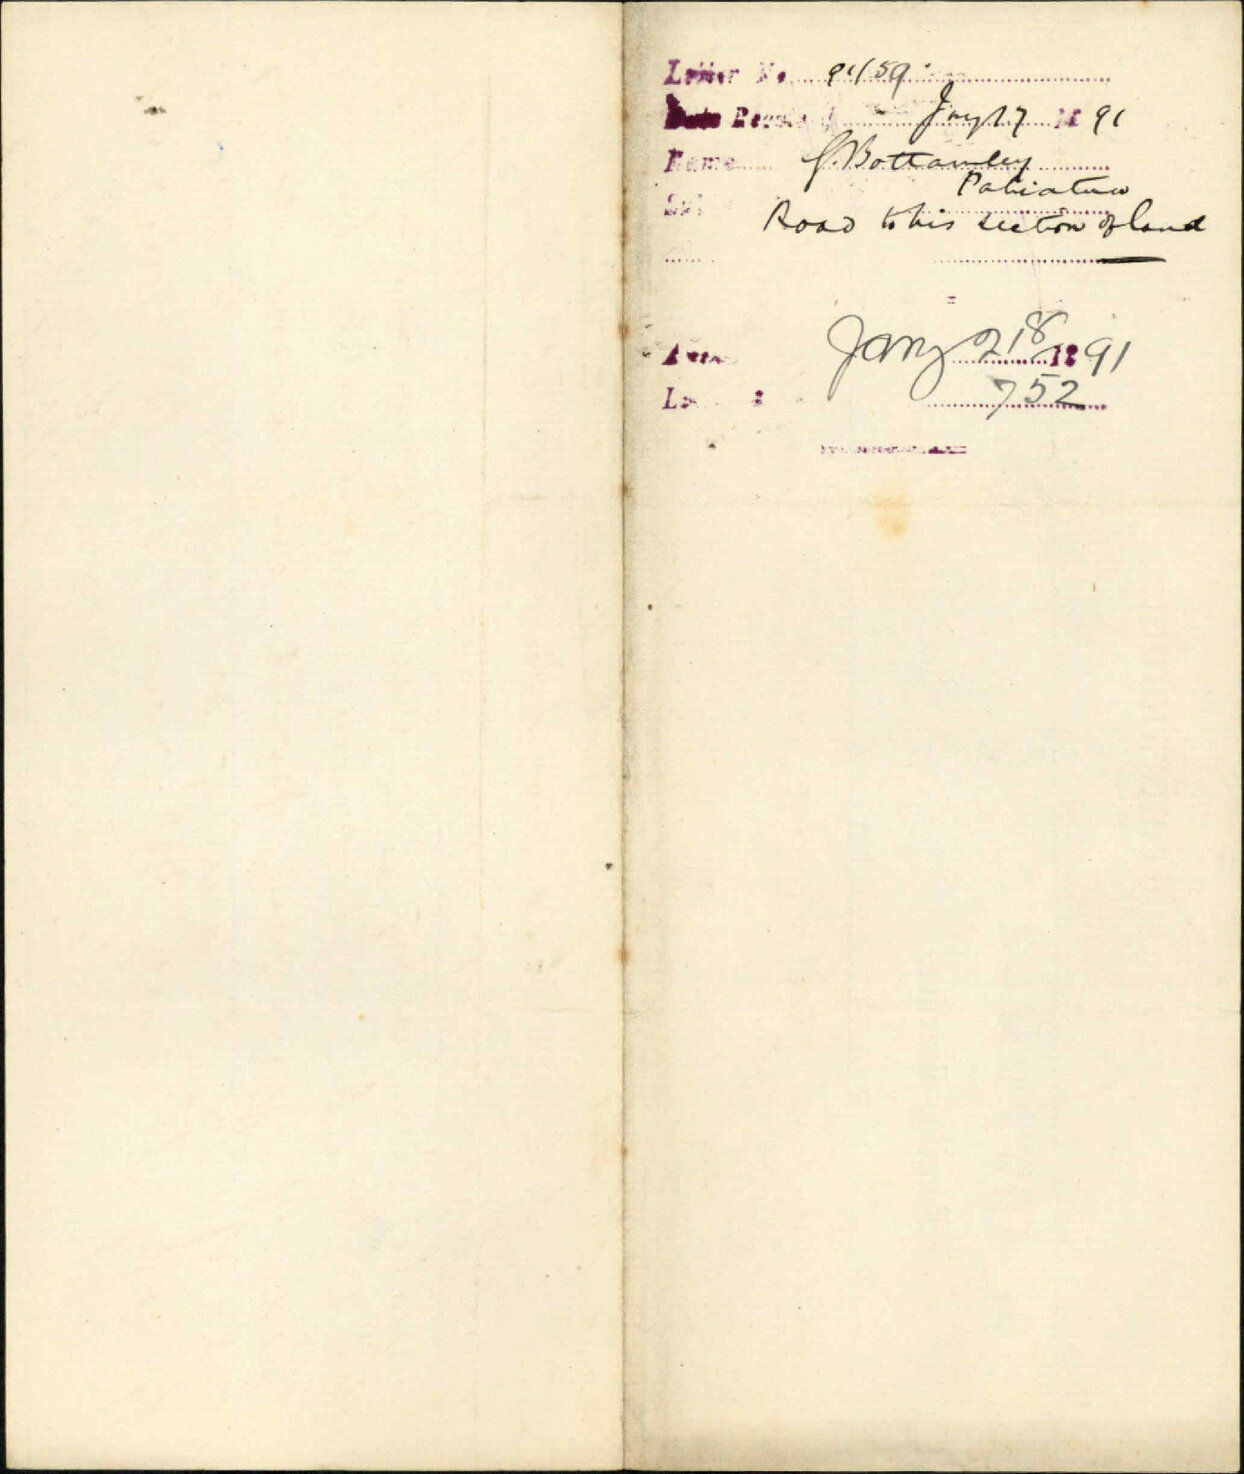 Letter No. 91/59
Date Received Jany 17 1891
Name G. Bottamley
Pahiatua
Road to his section of land
Jany 21 1891
752